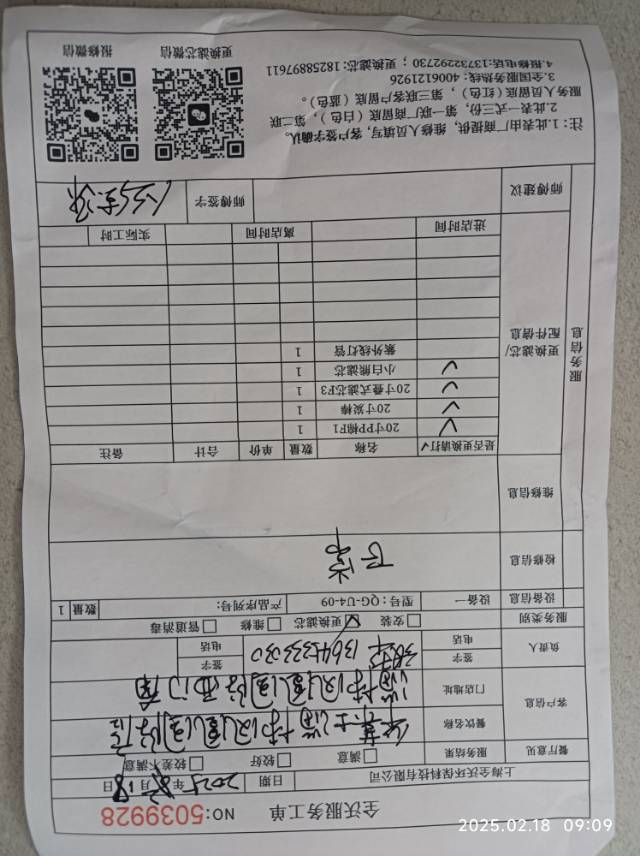 全沃服务工单
NO: 5039928
上海全沃环保科技有限公司
日期 2025年2月18日
餐厅意见 服务结果 满意 较好 较差不满意
客户信息 餐饮名称
门店地址
负责人 签字 签字
电话 电话
服务类别 安装 更换滤芯 维修 管道消毒
设备信息 设备一 型号：QG-U4-09 产品序列号： 数量 1
检修信息 正常
维修信息
服务信息
更换滤芯/配件信息
是否更换请打√ 名称 数量 单价 合计 备注
✓ 20寸PP棉F1 1
✓ 20寸炭棒 1
✓ 20寸叠式滤芯F3 1
✓ 小白熊滤芯 1
紫外线灯管 1
进店时间 离店时间 实际工时
师傅建议 师傅签字
注：1.此表由厂商提供，维修人员填写，客户签字确认。
2.此表一式三份，第一联厂商留底（白色），第二联
服务人员留底（红色），第三联客户留底（蓝色）。
3.全国服务热线：4006121926
4.报修电话:13732292730； 更换滤芯: 18258897611
更换滤芯微信 报修微信
2025.02.18 09:09